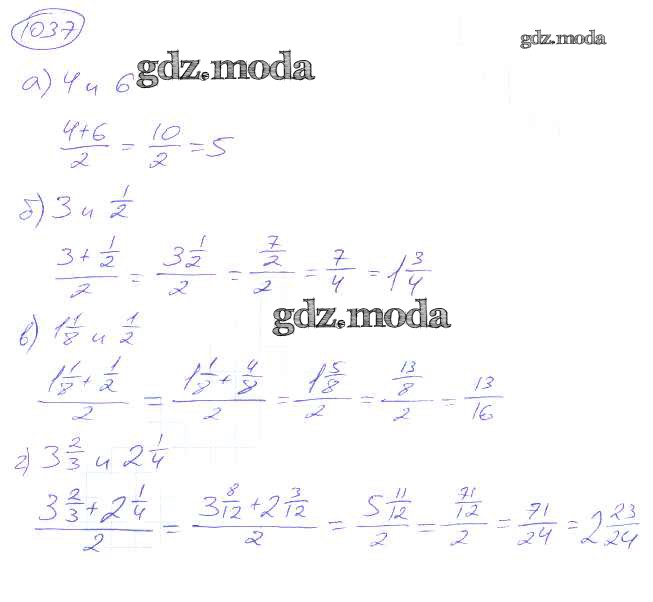 1037
gdz.moda
а) 4 и 6 gdz.moda
(4+6)/2 = 10/2 = 5
б) 3 и 1/2
(3 + 1/2)/2 = (3 1/2)/2 = (7/2)/2 = 7/4 = 1 3/4
gdz.moda
в) 1 1/8 и 1/2
(1 1/8 + 1/2)/2 = (1 1/8 + 4/8)/2 = (1 5/8)/2 = (13/8)/2 = 13/16
г) 3 2/3 и 2 1/4
(3 2/3 + 2 1/4)/2 = (3 8/12 + 2 3/12)/2 = (5 11/12)/2 = (71/12)/2 = 71/24 = 2 23/24